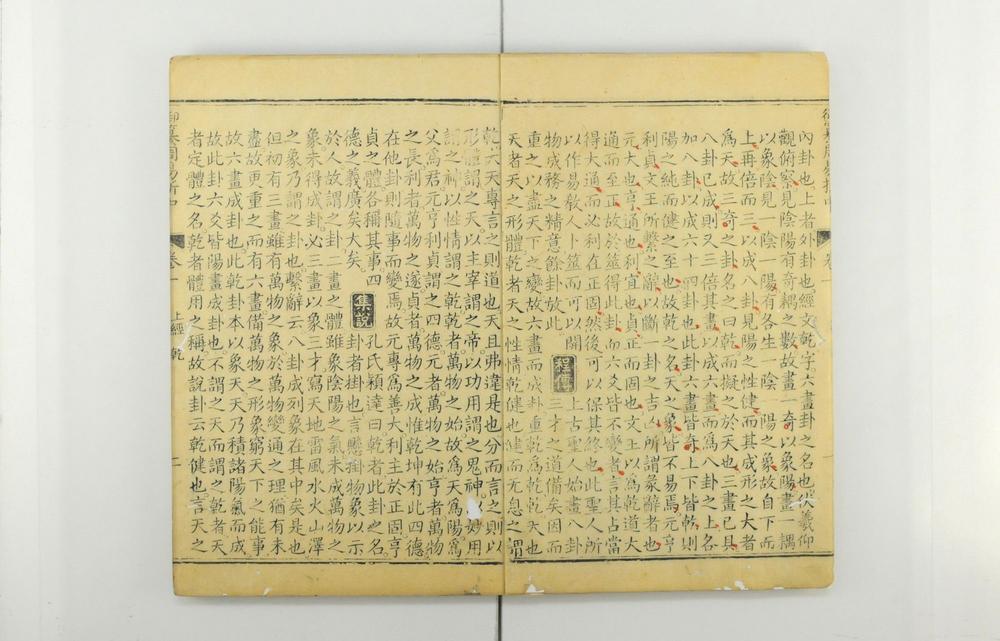 內卦也上者外卦也經文乾字六畫卦之名也伏羲仰
觀俯察見陰陽有奇耦之數故畫一奇以象陽畫一耦
以象陰見一陰一陽有各生一陰一陽之象故自下而
上再倍而三以成八卦見陽之性健而其成形之大者
爲天故三奇之卦名之曰乾而擬之於天也三畫已具
八卦已成則又三倍其畫以成六畫而爲八卦之上各
加八卦以成六十四卦也此卦六畫皆奇上下皆乾則
陽之純而健之至也故乾之名天之象皆不易焉元亨
利貞文王所繫之辭以斷一卦之吉凶所謂彖辭者也
元大也亨通也利宜也貞正而固也文王以爲乾道大
通而至正故於筮得此卦而六爻皆不變者言其占當
得大通而必利在正固然後可以保其終也此聖人所
以作易敎人卜筮而可以開
物成務之精意餘卦放此
程傳
上古聖人始畫八卦
三才之道備矣因而
重之以盡天下之變故六畫而成卦重乾爲乾乾天也
天者天之形體乾者天之性情乾健也健而无息之謂
乾夫天專言之則道也天且弗違是也分而言之則以
形體謂之天以主宰謂之帝以功用謂之鬼神以妙用
謂之神以性情謂之乾乾者萬物之始故爲天爲陽爲
父爲君元亨利貞謂之四德元者萬物之始亨者萬物
之長利者萬物之遂貞者萬物之成惟乾坤有此四德
在他卦則隨事而變焉故元專爲善大利主於正固亨
貞之體各稱其事四
德之義廣矣大矣
集說
孔氏穎達曰乾者此卦之名
卦者掛也言懸掛物象以示
於人故謂之卦二畫之體雖象陰陽之氣未成萬物之
象未得成卦必三畫以象三才寫天地雷風水火山澤
之象乃謂之卦也繫辭云八卦成列象在其中矣是也
但初有三畫雖有萬物之象於萬物變通之理猶有未
盡故更重之而有六畫備萬物之形象窮天下之能事
故六畫成卦也此乾卦本以象天天乃積諸陽氣而成
故此卦六爻皆陽畫成卦也不謂之天而謂之乾者天
者定體之名乾者體用之稱故說卦云乾健也言天之
卷一 上經 乾